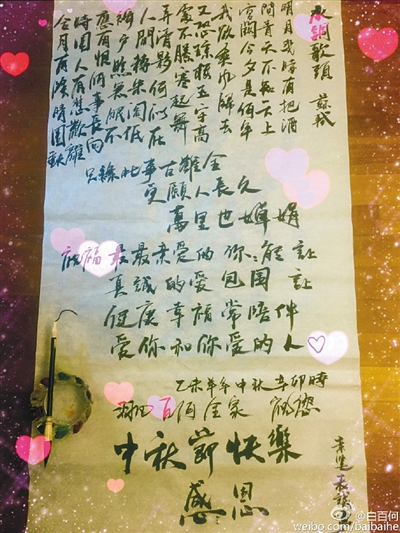 水調歌頭 蘇軾
明月幾時有把酒
問青天不知天上
宮闕今夕是何年
我欲乘風歸去
又恐瓊樓玉宇高
處不勝寒起舞
弄清影何似在
人間轉朱閣低
綺戶照無眠不
應有恨何事長向
時圓人有悲歡離
合月有陰晴圓缺
此事古難全
更願人長久
萬里也嬋娟
祝福最最亲爱的你:能讓
真誠的爱包围 讓
健康幸福常陪伴
爱你和你爱的人
乙未羊年中秋辛卯時
羽凡百何全家
中秋節快樂
感恩
@白百何
weibo.com/baibaihe